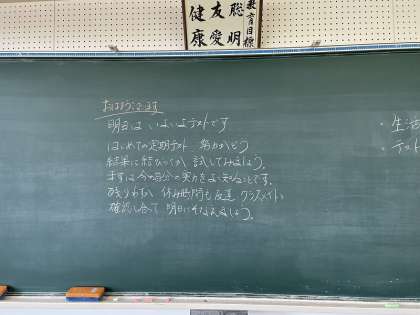 教育目標
聡明
友愛
健康
おはようございます
明日は いよいよテストです
はじめての定期テスト 努力がどう
結果に結びつくか 試してみましょう。
まずは今の自分の実力をよく知ることです。
残りわずか 休み時間も友達 クラスメイトと
確認し合って 明日にそなえましょう。
・生活
・テスト